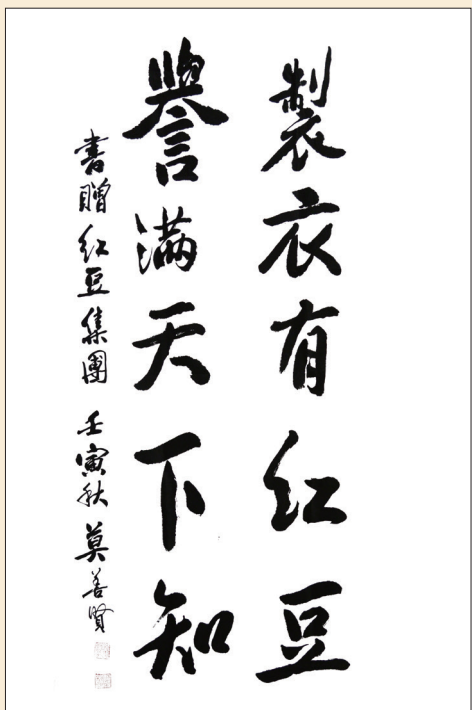 製衣有红豆
譽满天下知
書贈红豆集團 壬寅秋 莫善賢